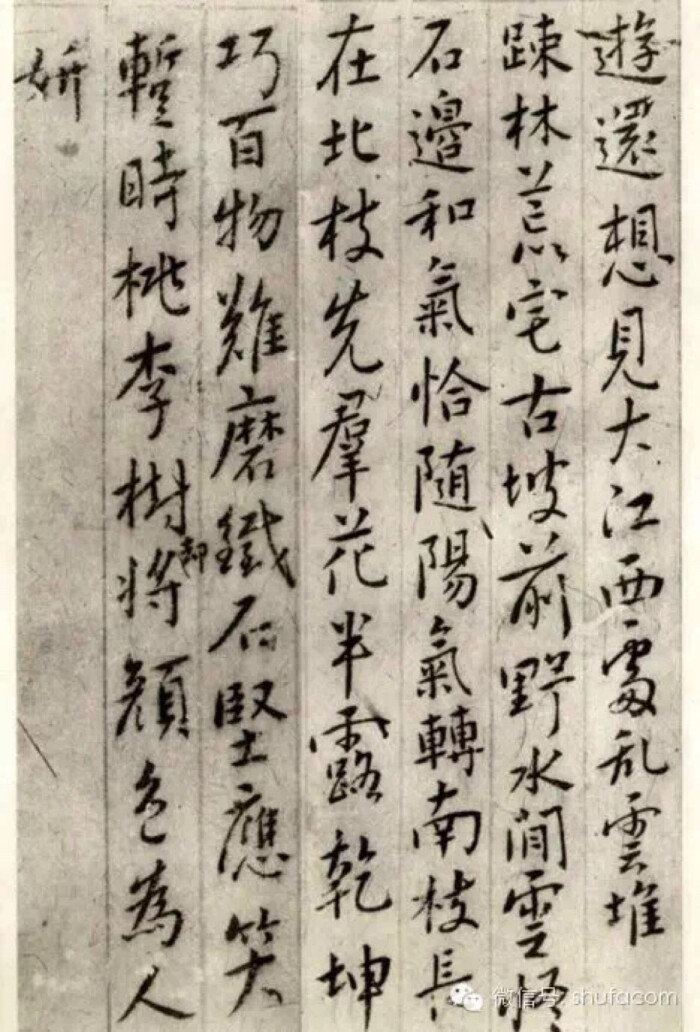 遊還想見大江西處乱雲堆
踈林荒宅古坡前野水閒雲怪
石邊和氣恰隨陽氣轉南枝長
在北枝先羣花半露乾坤
巧百物難磨鐵石堅應笑
暫時桃李樹却將顔色為人
妍
微信号: shufacom